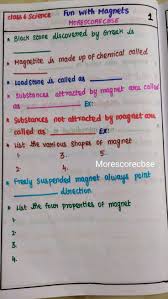 class 6 Science Fun with Magnets 1
MORESCORECBSE
Black stone discovered by Greek is
Magnetite is made up of chemical called
Loadstone is called as
Substances attracted by magnet are called
as Ex:
Substances not attracted by magnet are
called as Ex:
List the various shapes of magnet
1. 3. 5.
2. 4.
Morescorecbse
Freely suspended magnet always point
direction
List the four properties of magnet
1.
2.
3.
4.